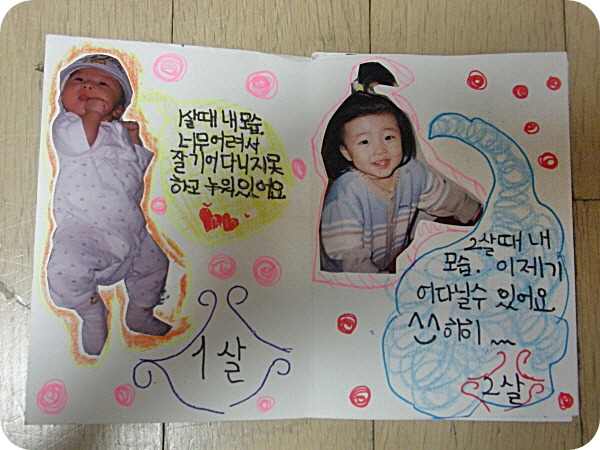 1살때 내모습.
너무어려서
잘기어다니지못
하고 누워있어요
1살
2살때 내
모습. 이제기
어다닐수 있어요
^^ 히히 ~~
2살